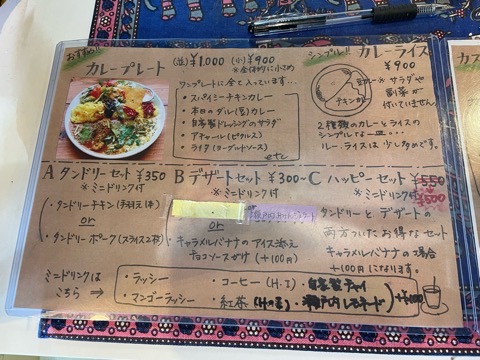 おすすめ!
カレープレート
(並)¥1,000 (小)¥900
※全体的に小さめ
ワンプレートに全て入っています…
・スパイシーチキンカレー
・本日のダル(豆)カレー
・自家製ドレッシングのサラダ
・アチャール(ピクルス)
・ライタ(ヨーグルトソース)
etc
シンプル!!
カレーライス
¥900
※サラダや
副菜が
付いていません
チキンカレー
2種類のカレーとライスの
シンプルな
ルー、ライスは少し多めです。
A タンドリーセット ¥350
※ミニドリンク付
・タンドリーチキン(手羽元1本)
or
・タンドリーポーク(スライス2枚)
B デザートセット ¥300~
※ミニドリンク付
or
・キャラメルバナナのアイス添え
チョコソースがけ (+100円)
C ハッピーセット ¥550
※ミニドリンク付
タンドリーとデザートの
両方ついたお得なセット
キャラメルバナナの場合
+100円になります。
ミニドリンクは
こちら →
・ラッシー
・マンゴーラッシー
・コーヒー(H.I)
・紅茶
・自家製チャイ
・瀬戸内レモネード
+¥100